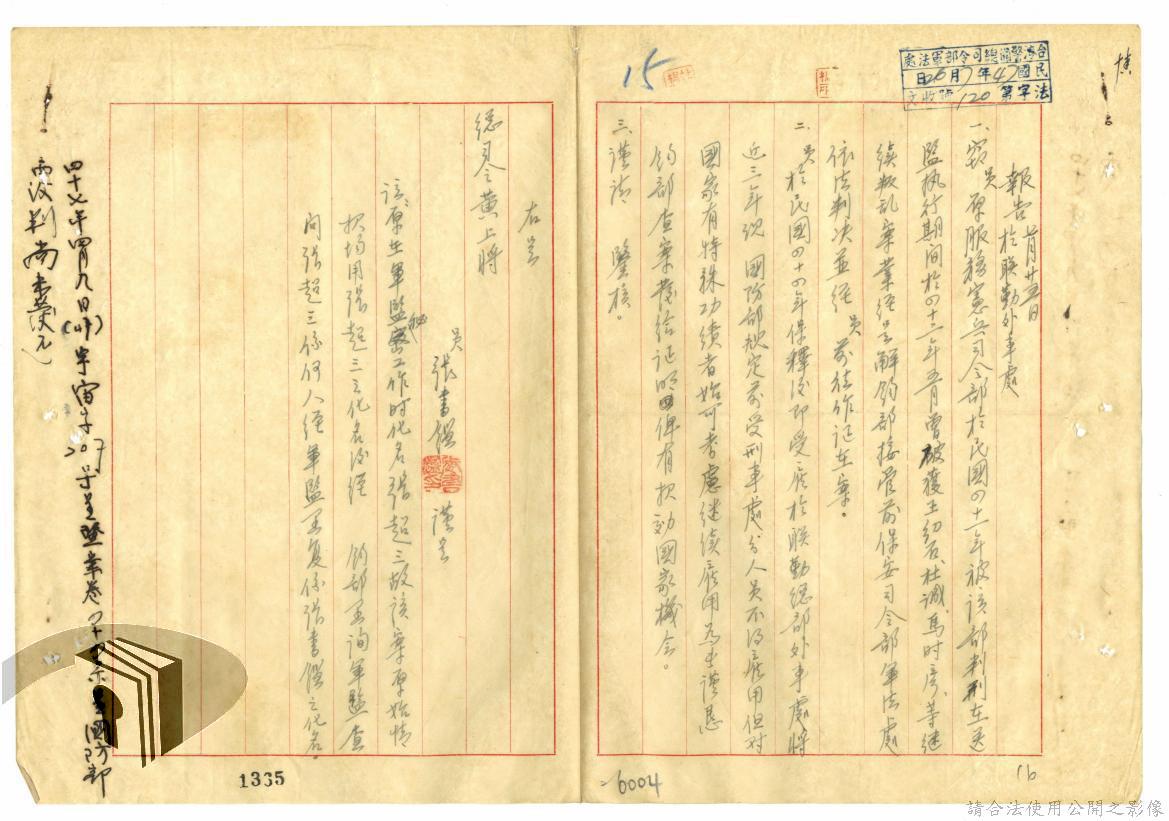 台灣警備總司令部軍法處
民國47年7月26日
法字第120號收文
報告 於聯勤外事處
一、竊員原服務憲兵司令部於民國四十一年被該部判刑在送
監執行期間於四十三年五月曾破獲王幼石、杜誠、馬時彥、等繼
續叛乱案業經呈解鈞部接管前保安司令部軍法處
依法判決並經員前往作証在案。
二、員於民國四十四年保釋後即受雇於聯勤總部外事處將
近三年現國防部規定前受刑事處分人員不得雇用但對
國家有特殊功績者始可考慮继续雇用為此謹懇
鈞部查案發給証明俾有报効國家機会。
三、謹請 鑒核。
右呈
總司令黃上將
員 張書銓 謹呈
該原在軍監秘密工作时化名張超三故該案原始情
报均用張超三之化名後經 鈞部函詢軍監查
問張超三係何人經軍監函复係張書銓之化名。
四十七年四月九日
覆判尚未發元
15
1335
6004
16
請合法使用公開之影像